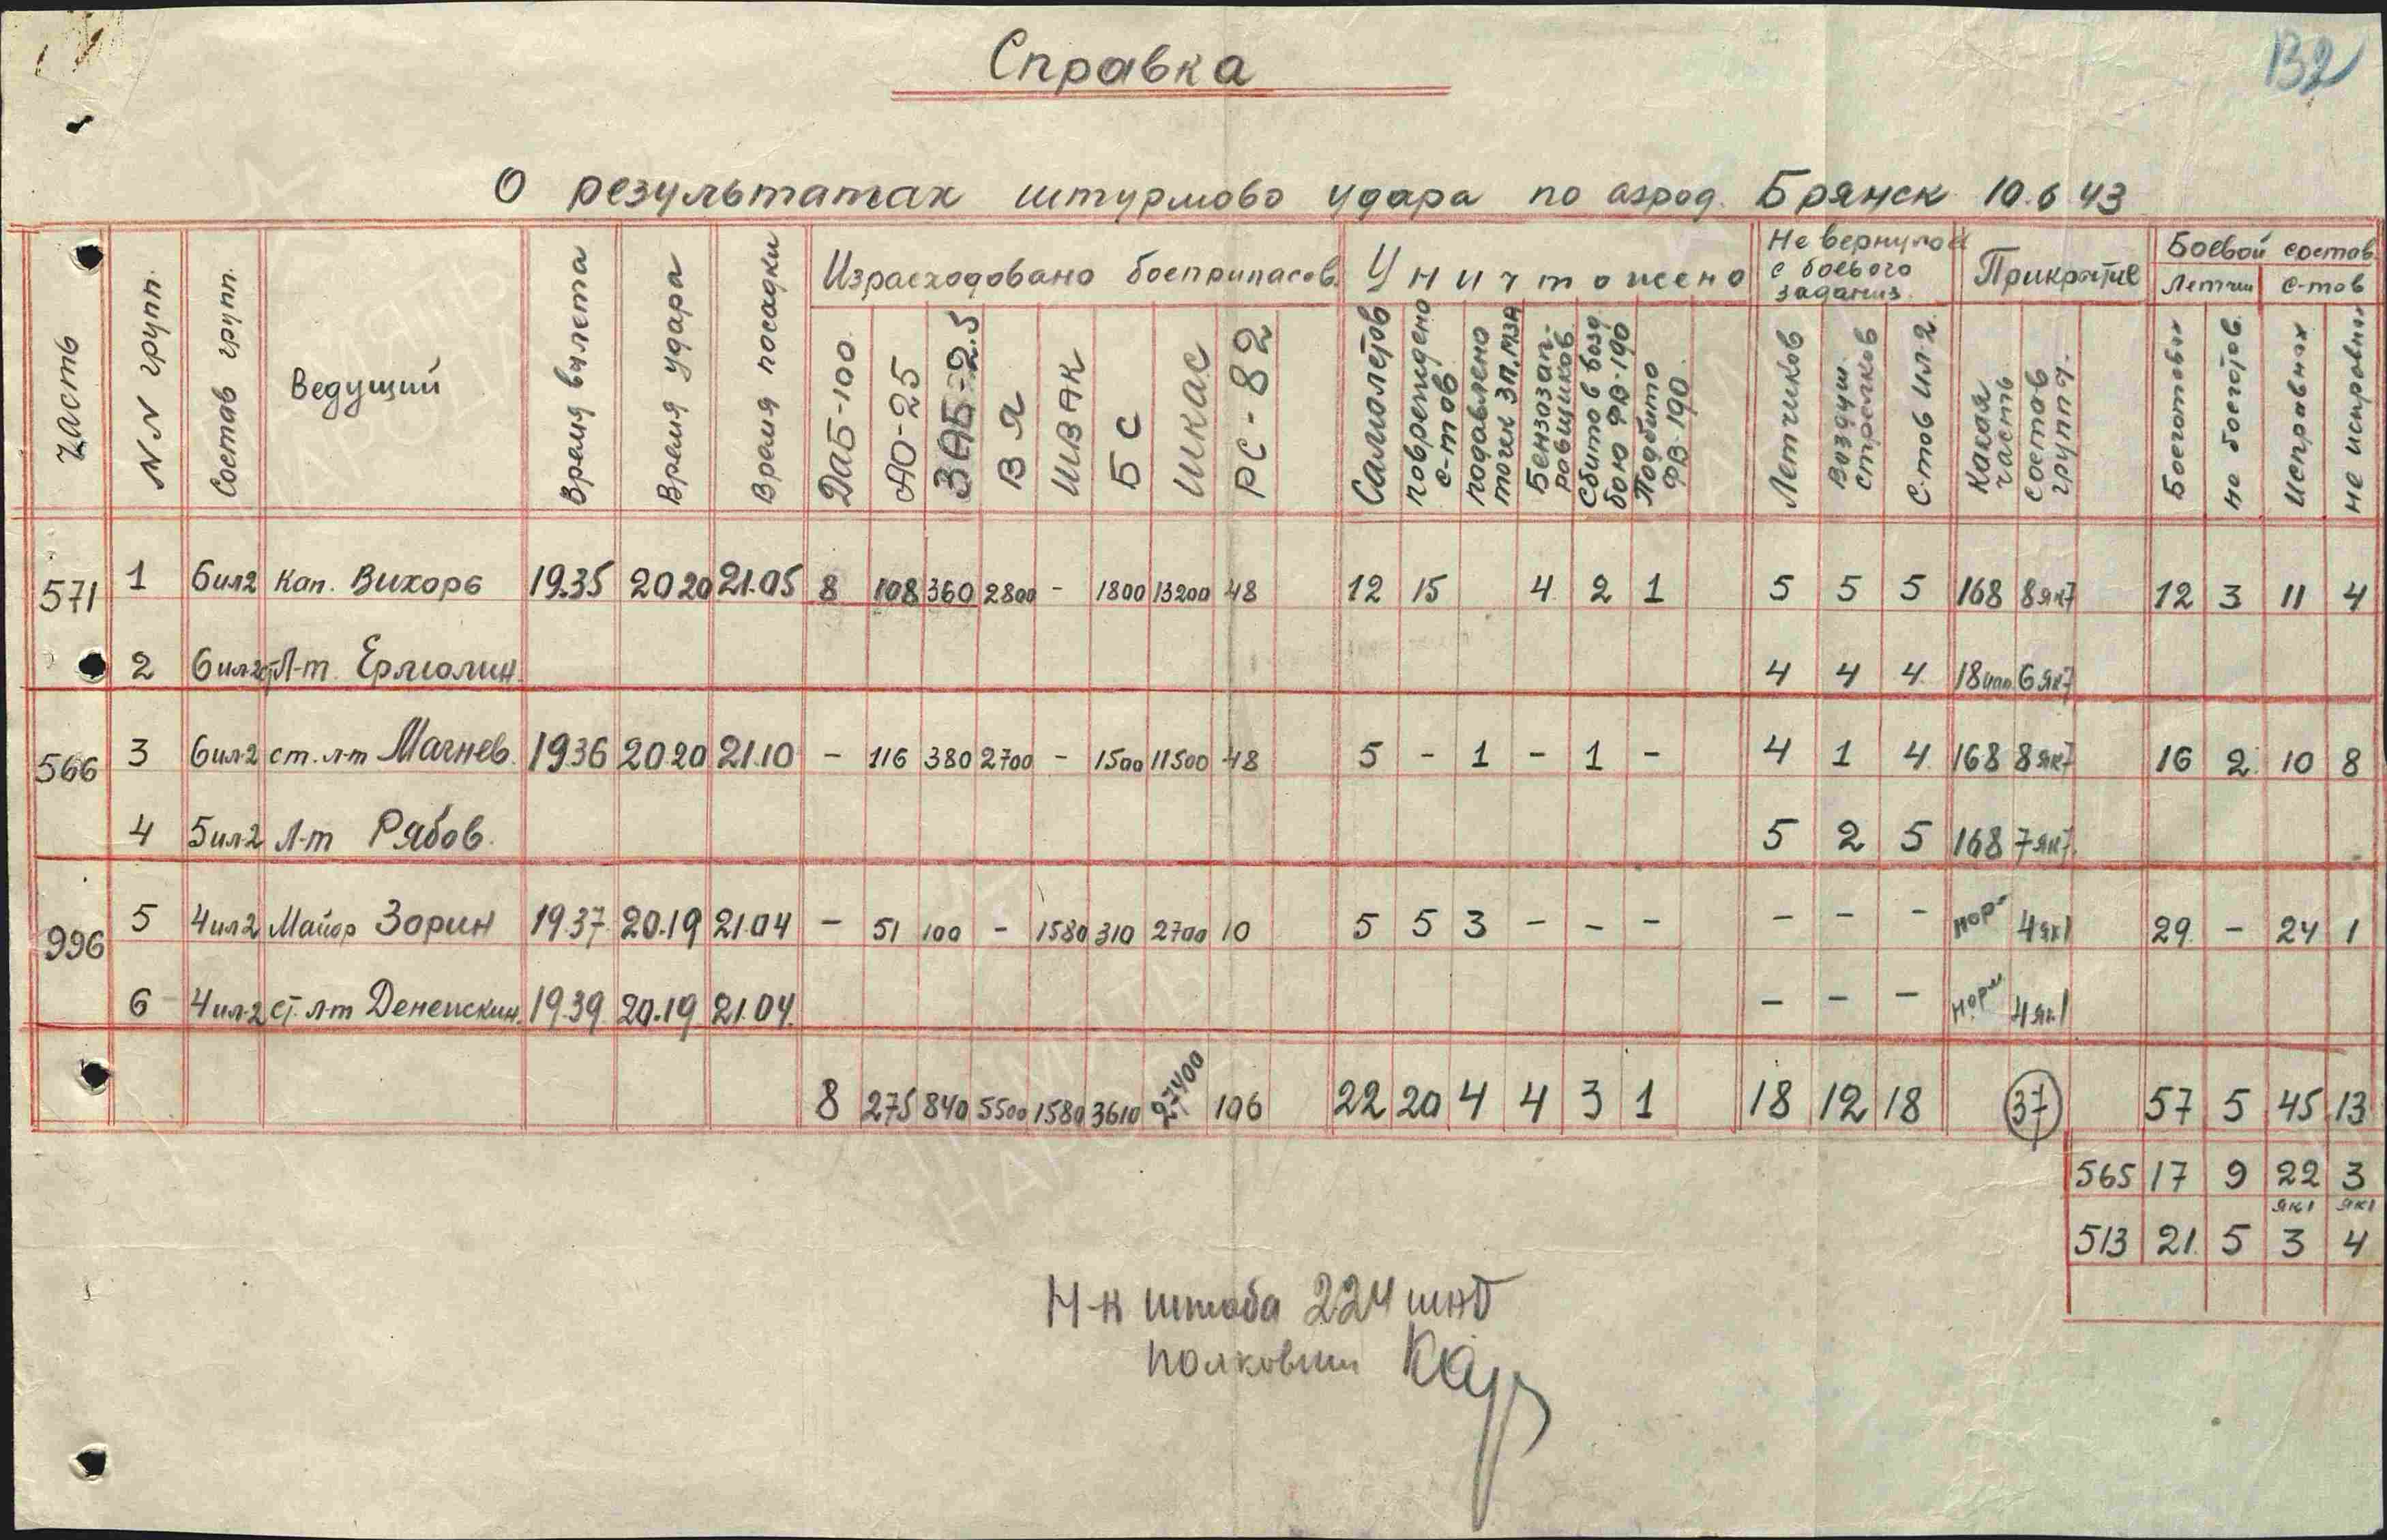 132
Справка
О результатах штурмово удара по аэрод. Брянск 10.6 43
Часть
NN групп.
Состав групп.
Ведущий
Время вылета
Время удара
Время посадки
Израсходовано боеприпасов
ДАБ-100.
АО-25
ЗАБ-2.5
ВЯ
ШВАК
БС
ШКАС
РС-82
Уничтожено
Самолетов
повреждено с-тов
подавлено точек ЗП, МЗА
Бензозап-ровщиков
Сбито в возд. бою ФВ-190
Подбито ФВ-190.
Не вернулось с боевого задания
Летчиков
Воздуш. стрелков
С-тов ИЛ-2
Прикрытие
Какая часть
Состав группы
Боевой состав
Летчики
с-тов
Боеготовых
не боеготов.
Исправных
не исправных
571 1 6ил2 Кап. Вихорь 19.35 20 20 21.05 8 108 360 2800 - 1800 13200 48 12 15 4 2 1 5 5 5 168 8як7 12 3 11 4
2 6ил2 ст Л-т Ермолин. 4 4 4 18иап 6як7
566 3 6ил-2 ст. л-т Магнев 19 36 20 20 21.10 - 116 380 2700 - 1500 11500 48 5 - 1 - 1 - 4 1 4 168 8як7 16 2 10 8
4 5ил-2 Л-т Рябов. 5 2 5 168 7як7
996 5 4ил2 Майор Зорин 19 37 20.19 21 04 - 51 100 - 1580 310 2700 10 5 5 3 - - - - - - норм 4як1 29 - 24 1
6 4ил-2 ст. л-т 19.39 20.19 21.04. - - - норм 4як1
8 275 840 5500 1580 3610 27400 106 22 20 4 4 3 1 18 12 18 37 57 5 45 13
565 17 9 22 3
як1 як1
513 21 5 3 4
Н-к штаба 224 шад
полковник